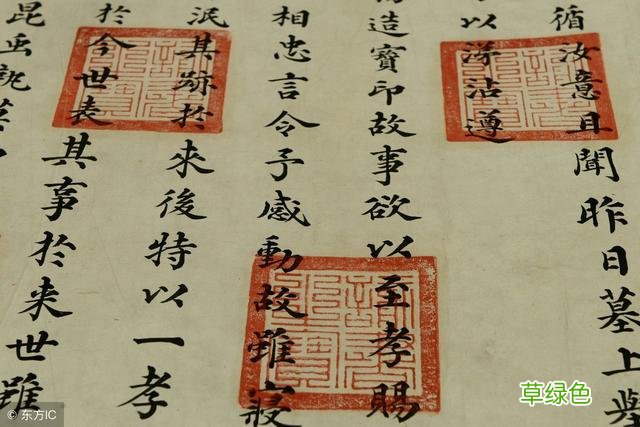 循汝意且聞昨日墓上
以沾遵
造寶印故事欲以至孝賜
相忠言令子感動故雖寢
泯其跡於來後特以一孝
於今世表其事於来世雖
昆
草绿色
© 东方IC